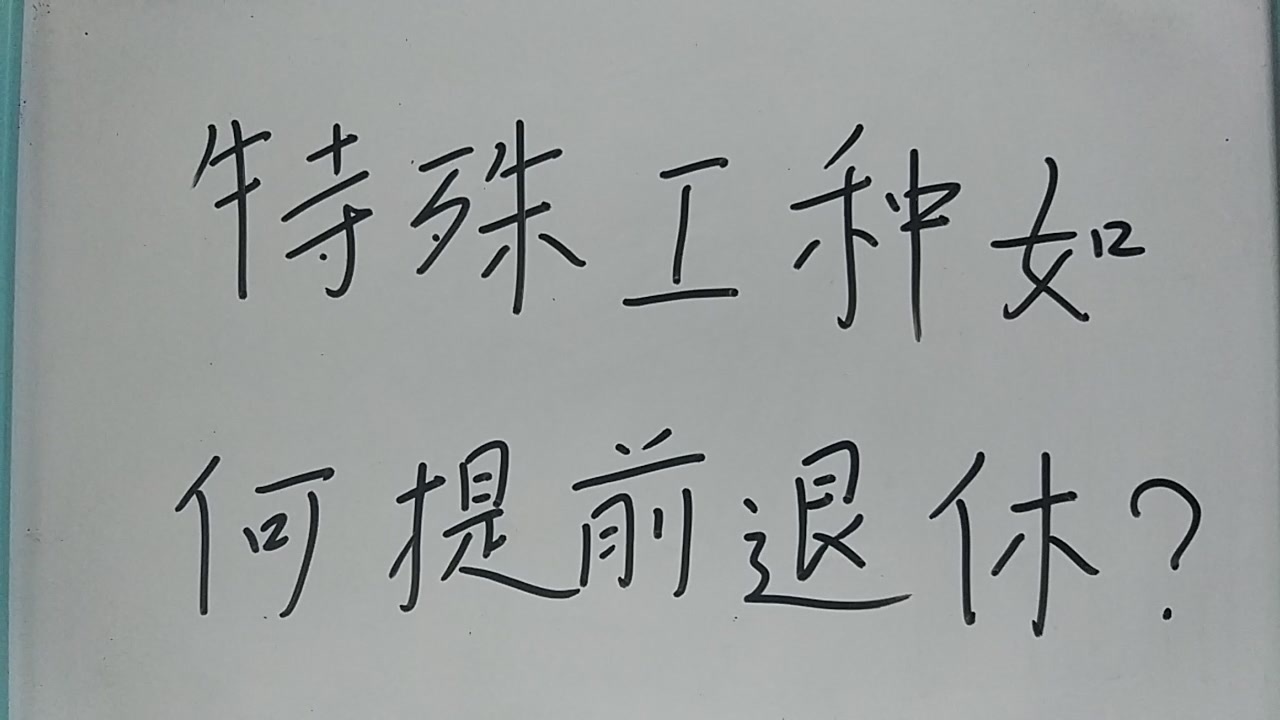 特殊工种如
何提前退休?